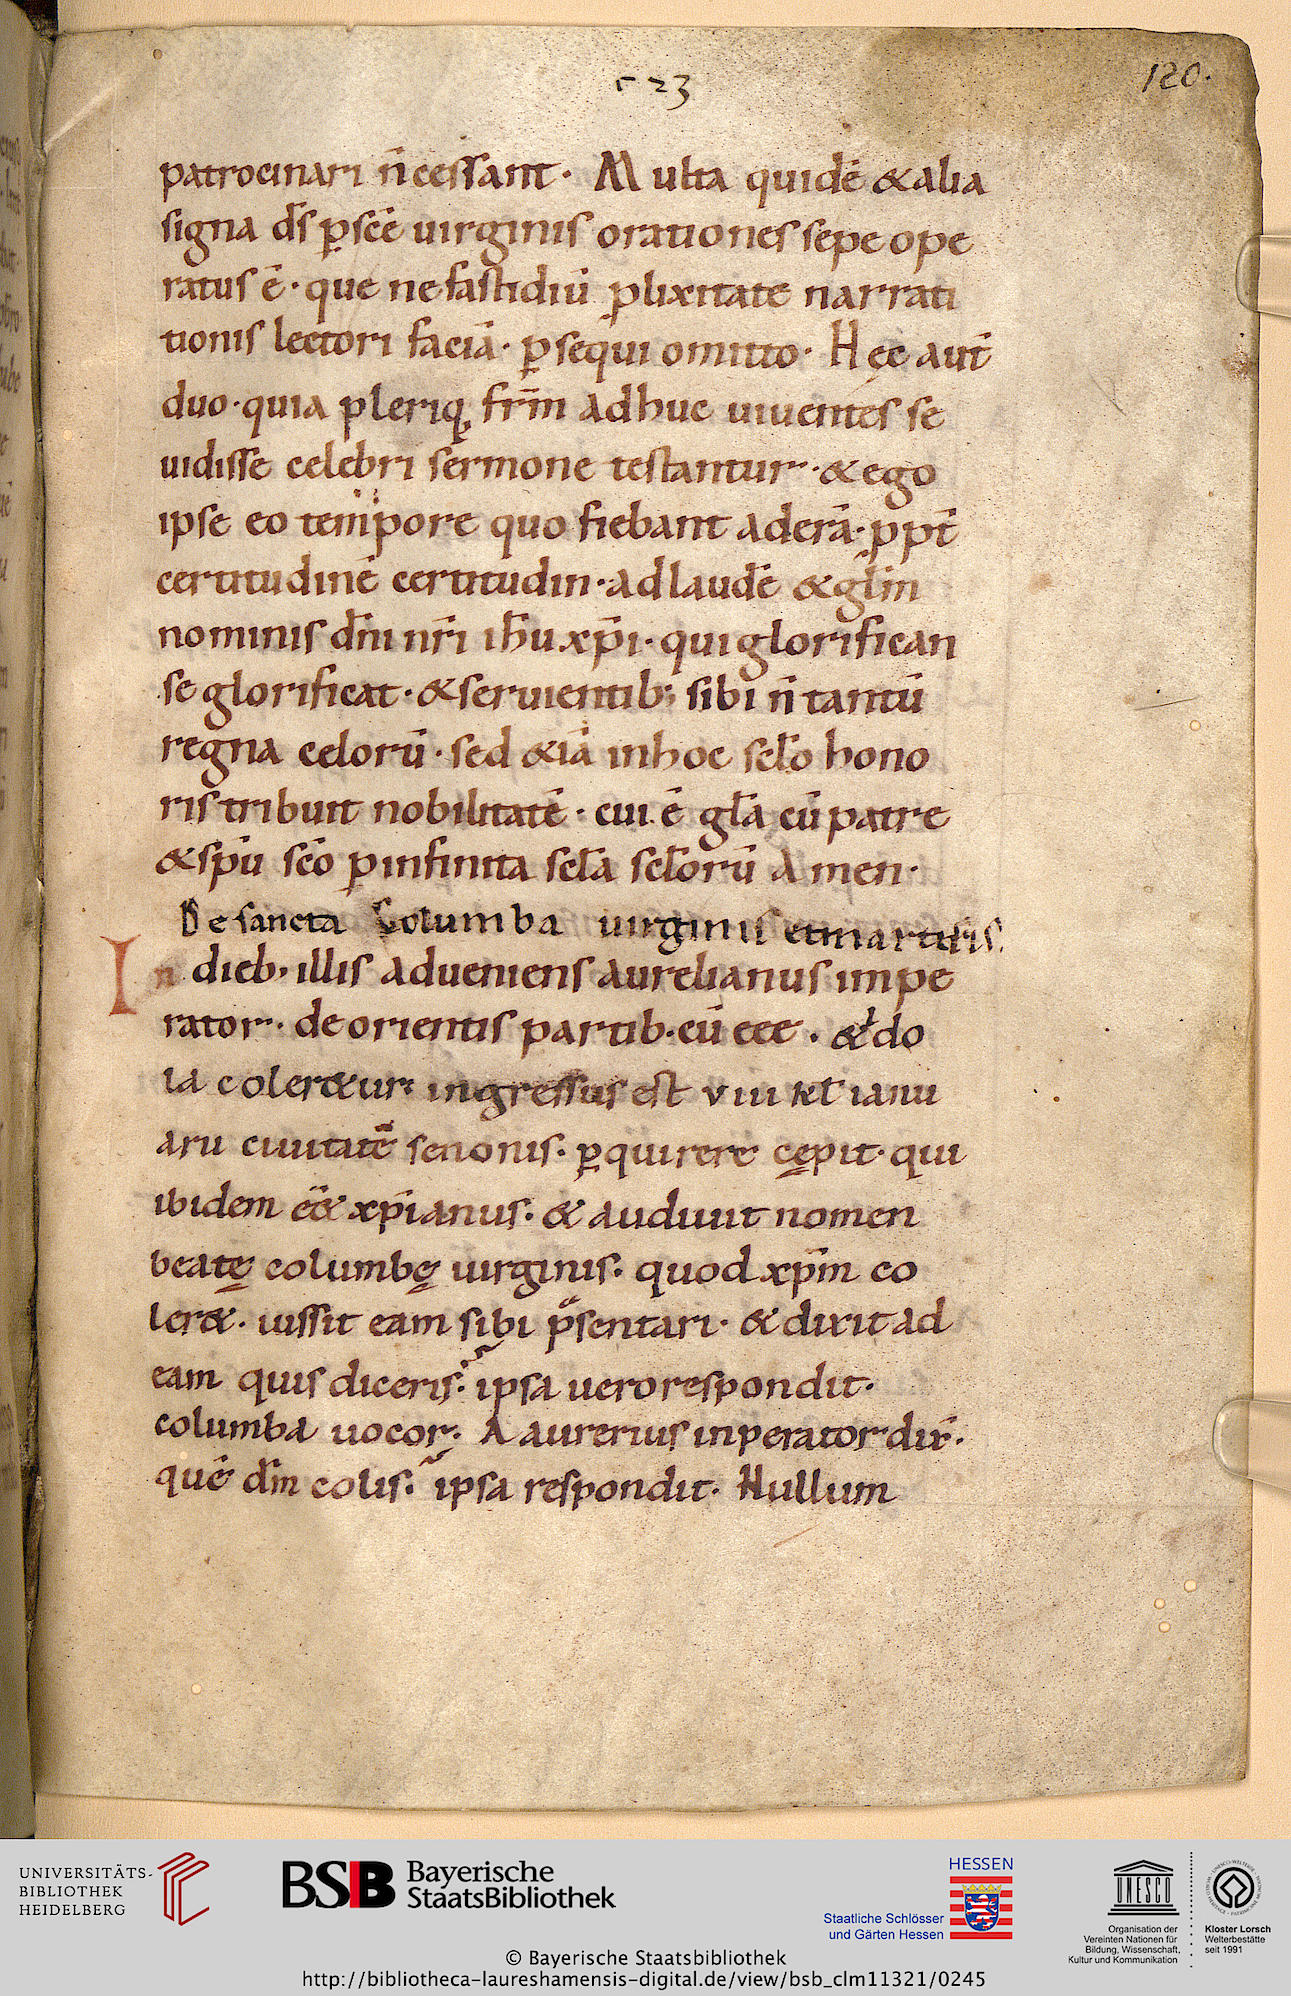 523
120.
patrocinari n̄ cessant· Multa quidē &alia
signa d̄s ꝑ scē uirginis orationes sepe ope
ratus ē· que ne fastidiū plixitate narrati
tionis lectori faciā· ꝑsequi omitto· Hęc aut̄
duo· quia pleriq; fr̄m adhuc uiuentes se
uidisse celebri sermone testantur· & ego
ipse eo tempore quo fiebant aderā· ppt̄
certitudinē certitudin· ad laudē & gl̄m
nominis dn̄i nr̄i ih̄u xp̄i· qui glorifican
se glorificat· & seruientib; sibi n̄ tantū
regna celorū· sed &iā in hoc scl̄o hono
ris tribuit nobilitatē· cui ē gl̄a cū patre
& sp̄u scō ꝑ infinita scl̄a scl̄orū Amen·
De sancta Columba uirginis et martiris.
In dieb; illis adueniens aurelianus impe
rator· de orientis partib· cū eee· & do
la coler&ur· ingressus est viii kl̄ ianu
aru ciuitatē senonis· ꝑquirere cępit· qui
ibidem eē& xp̄ianus· & audiuit nomen
beatę columbę uirginis· quod xp̄m co
ler&· iussit eam sibi p̄sentari· & dixit ad
eam quis diceris· ipsa uero respondit·
columba uocor· A aurerius inperator dix̄·
quē dm̄ colis· ipsa respondit· Nullum
UNIVERSITÄTS-
BIBLIOTHEK
HEIDELBERG
BSB Bayerische
StaatsBibliothek
HESSEN
Staatliche Schlösser
und Gärten Hessen
UNESCO
Organisation der
Vereinten Nationen für
Bildung, Wissenschaft,
Kultur und Kommunikation
Kloster Lorsch
Welterbestätte
seit 1991
© Bayerische Staatsbibliothek
http://bibliotheca-laureshamensis-digital.de/view/bsb_clm11321/0245